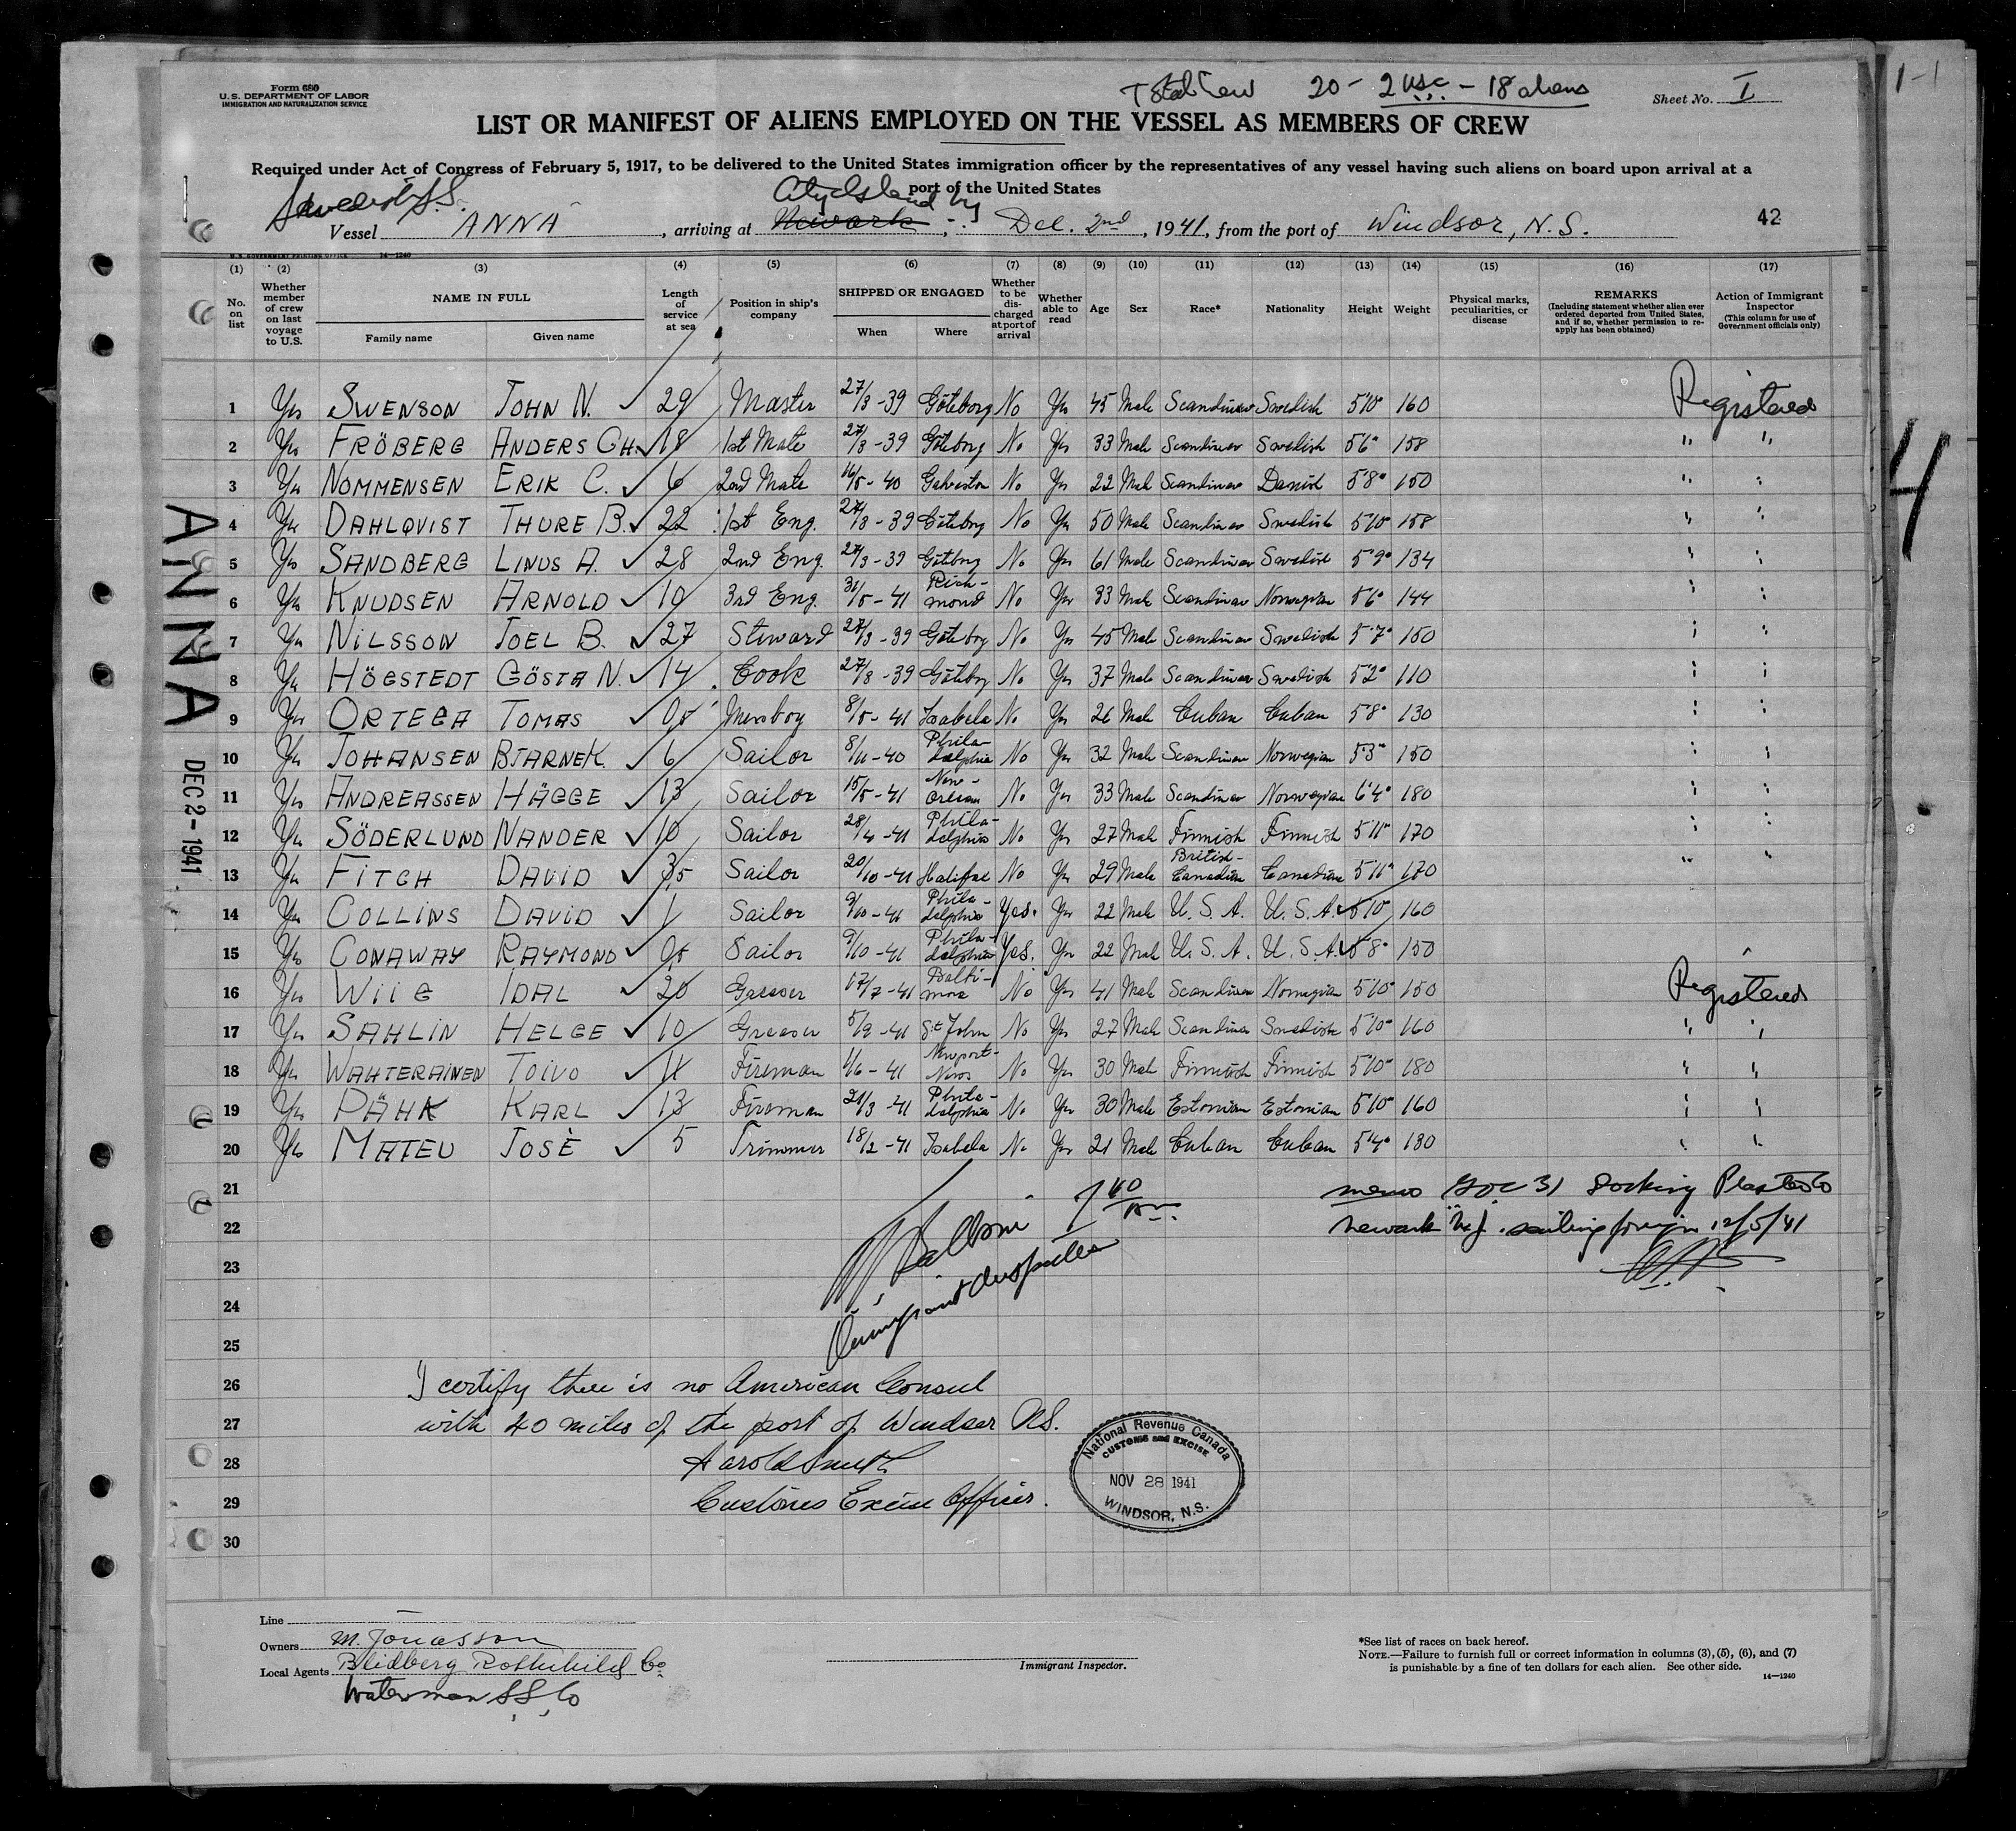 Form 680
U. S. DEPARTMENT OF LABOR
IMMIGRATION AND NATURALIZATION SERVICE
Total Crew 20 - 2 USC - 18 aliens
Sheet No. I
1-1
LIST OR MANIFEST OF ALIENS EMPLOYED ON THE VESSEL AS MEMBERS OF CREW
Required under Act of Congress of February 5, 1917, to be delivered to the United States immigration officer by the representatives of any vessel having such aliens on board upon arrival at a
port of the United States
Swedish S.S. City Island NY
Vessel ANNA, arriving at Newark, Dec. 2nd, 1941, from the port of Windsor, N.S.
42
U. S. GOVERNMENT PRINTING OFFICE 14-1240
(1) (2) (3) (4) (5) (6) (7) (8) (9) (10) (11) (12) (13) (14) (15) (16) (17)
No. on list
Whether member of crew on last voyage to U.S.
NAME IN FULL
Family name Given name
Length of service at sea
Position in ship's company
SHIPPED OR ENGAGED
When Where
Whether to be discharged at port of arrival
Whether able to read
Age Sex Race* Nationality Height Weight
Physical marks, peculiarities, or disease
REMARKS
(Including statement whether alien ever ordered deported from United States, and if so, whether permission to reapply has been obtained)
Action of Immigrant Inspector
(This column for use of Government officials only)
1 Yes SWENSON JOHN N. ✓ 29 Master 27/3-39 Göteborg No Yes 45 Male Scandinav Swedish 5'10" 160 Registered
2 Yes FRÖBERG ANDERS CH. ✓ 18 1st Mate 27/3-39 Göteborg No Yes 33 Male Scandinav Swedish 5'6" 158 " "
3 Yes NOMMENSEN ERIK C. ✓ 6 2nd Mate 16/5-40 Galveston No Yes 22 Male Scandinav Danish 5'8" 150 " "
4 Yes DAHLQVIST THURE B. ✓ 22 1st Eng. 27/3-39 Göteborg No Yes 50 Male Scandinav Swedish 5'10" 158 " "
5 Yes SANDBERG LINUS A. ✓ 28 2nd Eng. 27/3-39 Göteborg No Yes 61 Male Scandinav Swedish 5'9" 134 " "
6 Yes KNUDSEN ARNOLD ✓ 10 3rd Eng. 31/5-41 Richmond No Yes 33 Male Scandinav Norwegian 5'6" 144 " "
7 Yes NILSSON JOEL B. ✓ 27 Steward 27/3-39 Göteborg No Yes 45 Male Scandinav Swedish 5'7" 150 " "
8 Yes HÖGSTEDT GÖSTA N. ✓ 14 Cook 27/3-39 Göteborg No Yes 37 Male Scandinav Swedish 5'2" 110 " "
9 Yes ORTEGA TOMAS ✓ 0,5 Messboy 8/5-41 Isabela No Yes 26 Male Cuban Cuban 5'8" 130 " "
10 Yes JOHANSEN BJARNE K. ✓ 6 Sailor 8/11-40 Philadelphia No Yes 32 Male Scandinav Norwegian 5'3" 150 " "
11 Yes ANDREASSEN HÅGGE ✓ 13 Sailor 15/5-41 New-Orleans No Yes 33 Male Scandinav Norwegian 6'4" 180 " "
12 Yes SÖDERLUND NANDER ✓ 10 Sailor 28/4-41 Philadelphia No Yes 27 Male Finnish Finnish 5'11" 170 " "
13 Yes FITCH DAVID ✓ 3,5 Sailor 20/10-41 Halifax No Yes 29 Male British-Canadian Canadian 5'11" 170 " "
14 Yes COLLINS DAVID ✓ 1 Sailor 9/10-41 Philadelphia Yes. Yes 22 Male U.S.A. U.S.A. ✓ 5'10" 160
15 Yes CONAWAY RAYMOND ✓ 0,5 Sailor 9/10-41 Philadelphia Yes. Yes 22 Male U.S.A. U.S.A. ✓ 5'8" 150
16 Yes WIIG IDAL ✓ 20 Greaser 17/7-41 Baltimore No Yes 41 Male Scandinav Norwegian 5'10" 150 Registered
17 Yes SAHLIN HELGE ✓ 10 Greaser 5/9-41 St John No Yes 27 Male Scandinav Swedish 5'10" 160 " "
18 Yes WAHTERAINEN TOIVO ✓ 11 Fireman 1/6-41 Newport-News No Yes 30 Male Finnish Finnish 5'10" 180 " "
19 Yes PÄHK KARL ✓ 13 Fireman 21/3-41 Philadelphia No Yes 30 Male Estonian Estonian 5'10" 160 " "
20 Yes MATEU JOSÈ ✓ 5 Trimmer 18/2-41 Isabela No Yes 21 Male Cuban Cuban 5'4" 130 " "
ANNA
DEC 2-1941
4
21 memo 31 Docking
22 Newark N.J. sailing foreign 12/5/41
23
24 Immigrant Inspector
25
26 I certify there is no American Consul
27 with 40 miles of the port of Windsor N.S.
28 Harold Smith
29 Customs Excise Officer.
30
National Revenue Canada
CUSTOMS and EXCISE
NOV 28 1941
WINDSOR, N.S.
Line
Owners M. Jonasson
Local Agents Blidberg Rothchild Co
Waterman S.S. Co
Immigrant Inspector.
*See list of races on back hereof.
NOTE.—Failure to furnish full or correct information in columns (3), (5), (6), and (7)
is punishable by a fine of ten dollars for each alien. See other side.
14—1240